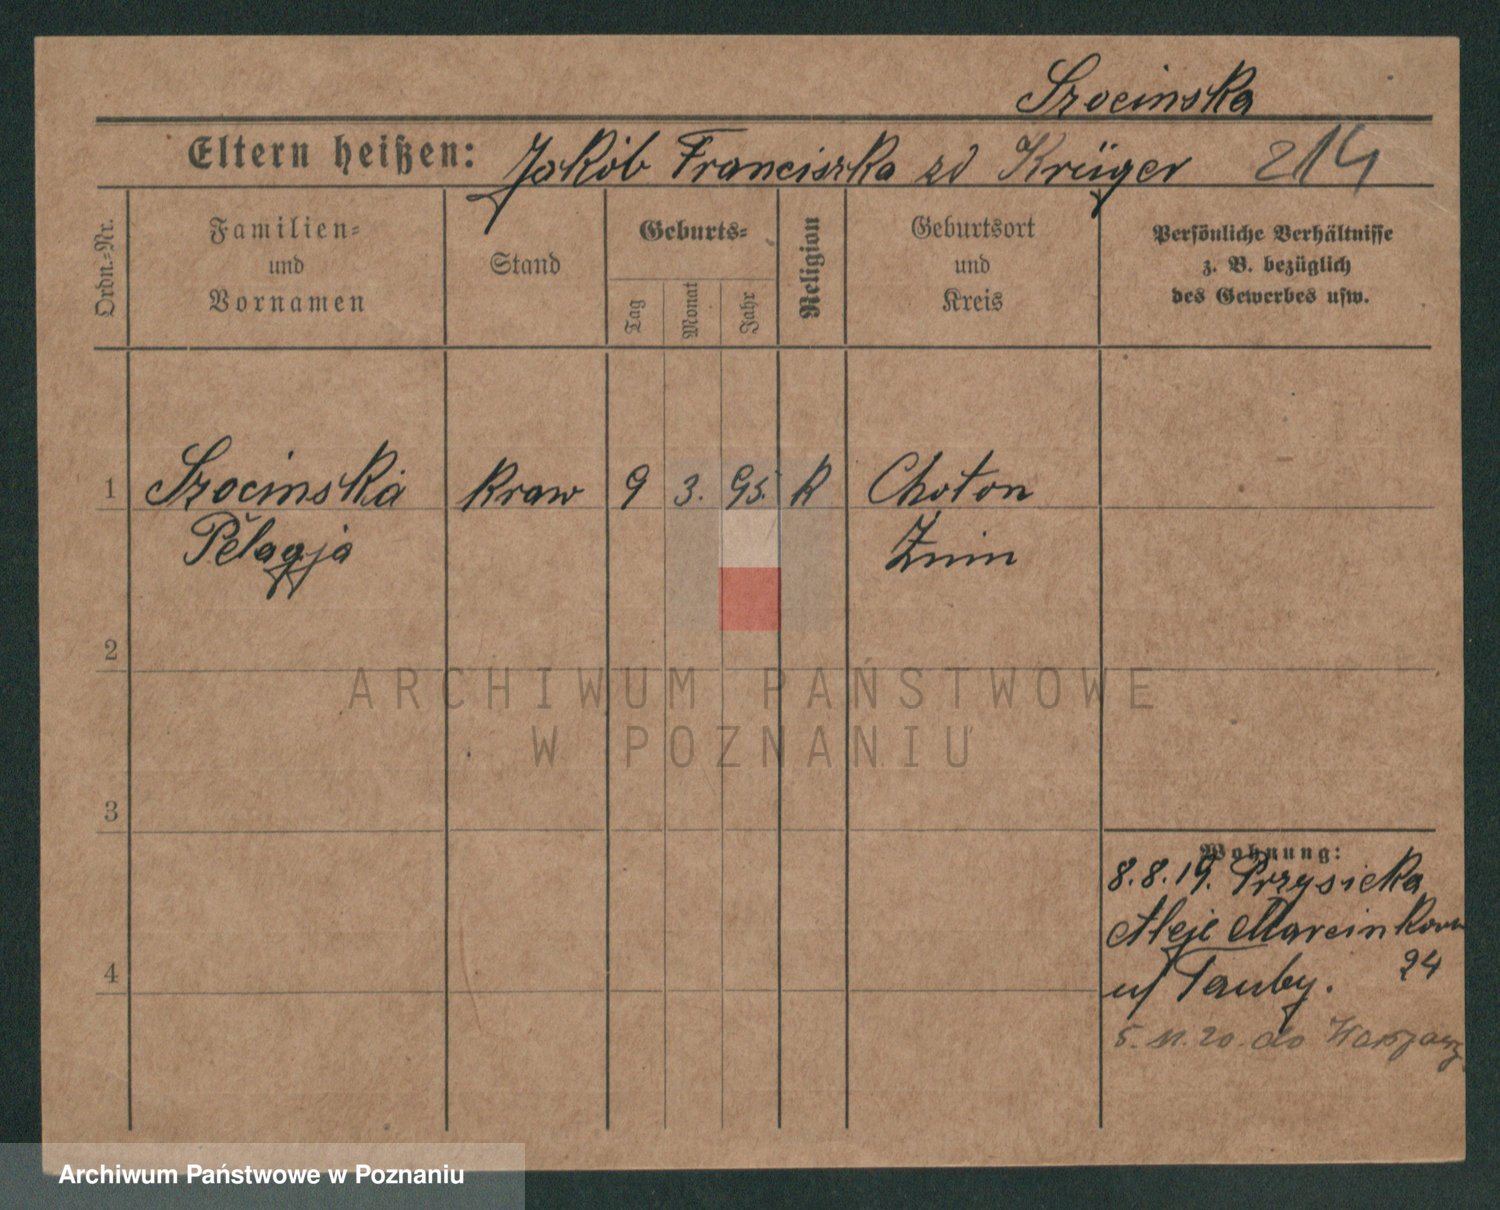 Srocinska
Eltern heißen: Jakób Franciszka zd Krüger 214
Ordn.-Nr.
Familien-
und
Vornamen
Stand
Geburts-
Tag
Monat
Jahr
Religion
Geburtsort
und
Kreis
Persönliche Verhältnisse
z. B. bezüglich
des Gewerbes usw.
1 Srocinska Kraw 9 3. 95. K Choton
Pelagja Znin
2
ARCHIWUM PAŃSTWOWE
W POZNANIU
3
Wohnung:
8.8.19. Przysiecka
Aleje Marcinkow
24
u/ Tauby.
5.11.20. do Warszawy
4
Archiwum Państwowe w Poznaniu